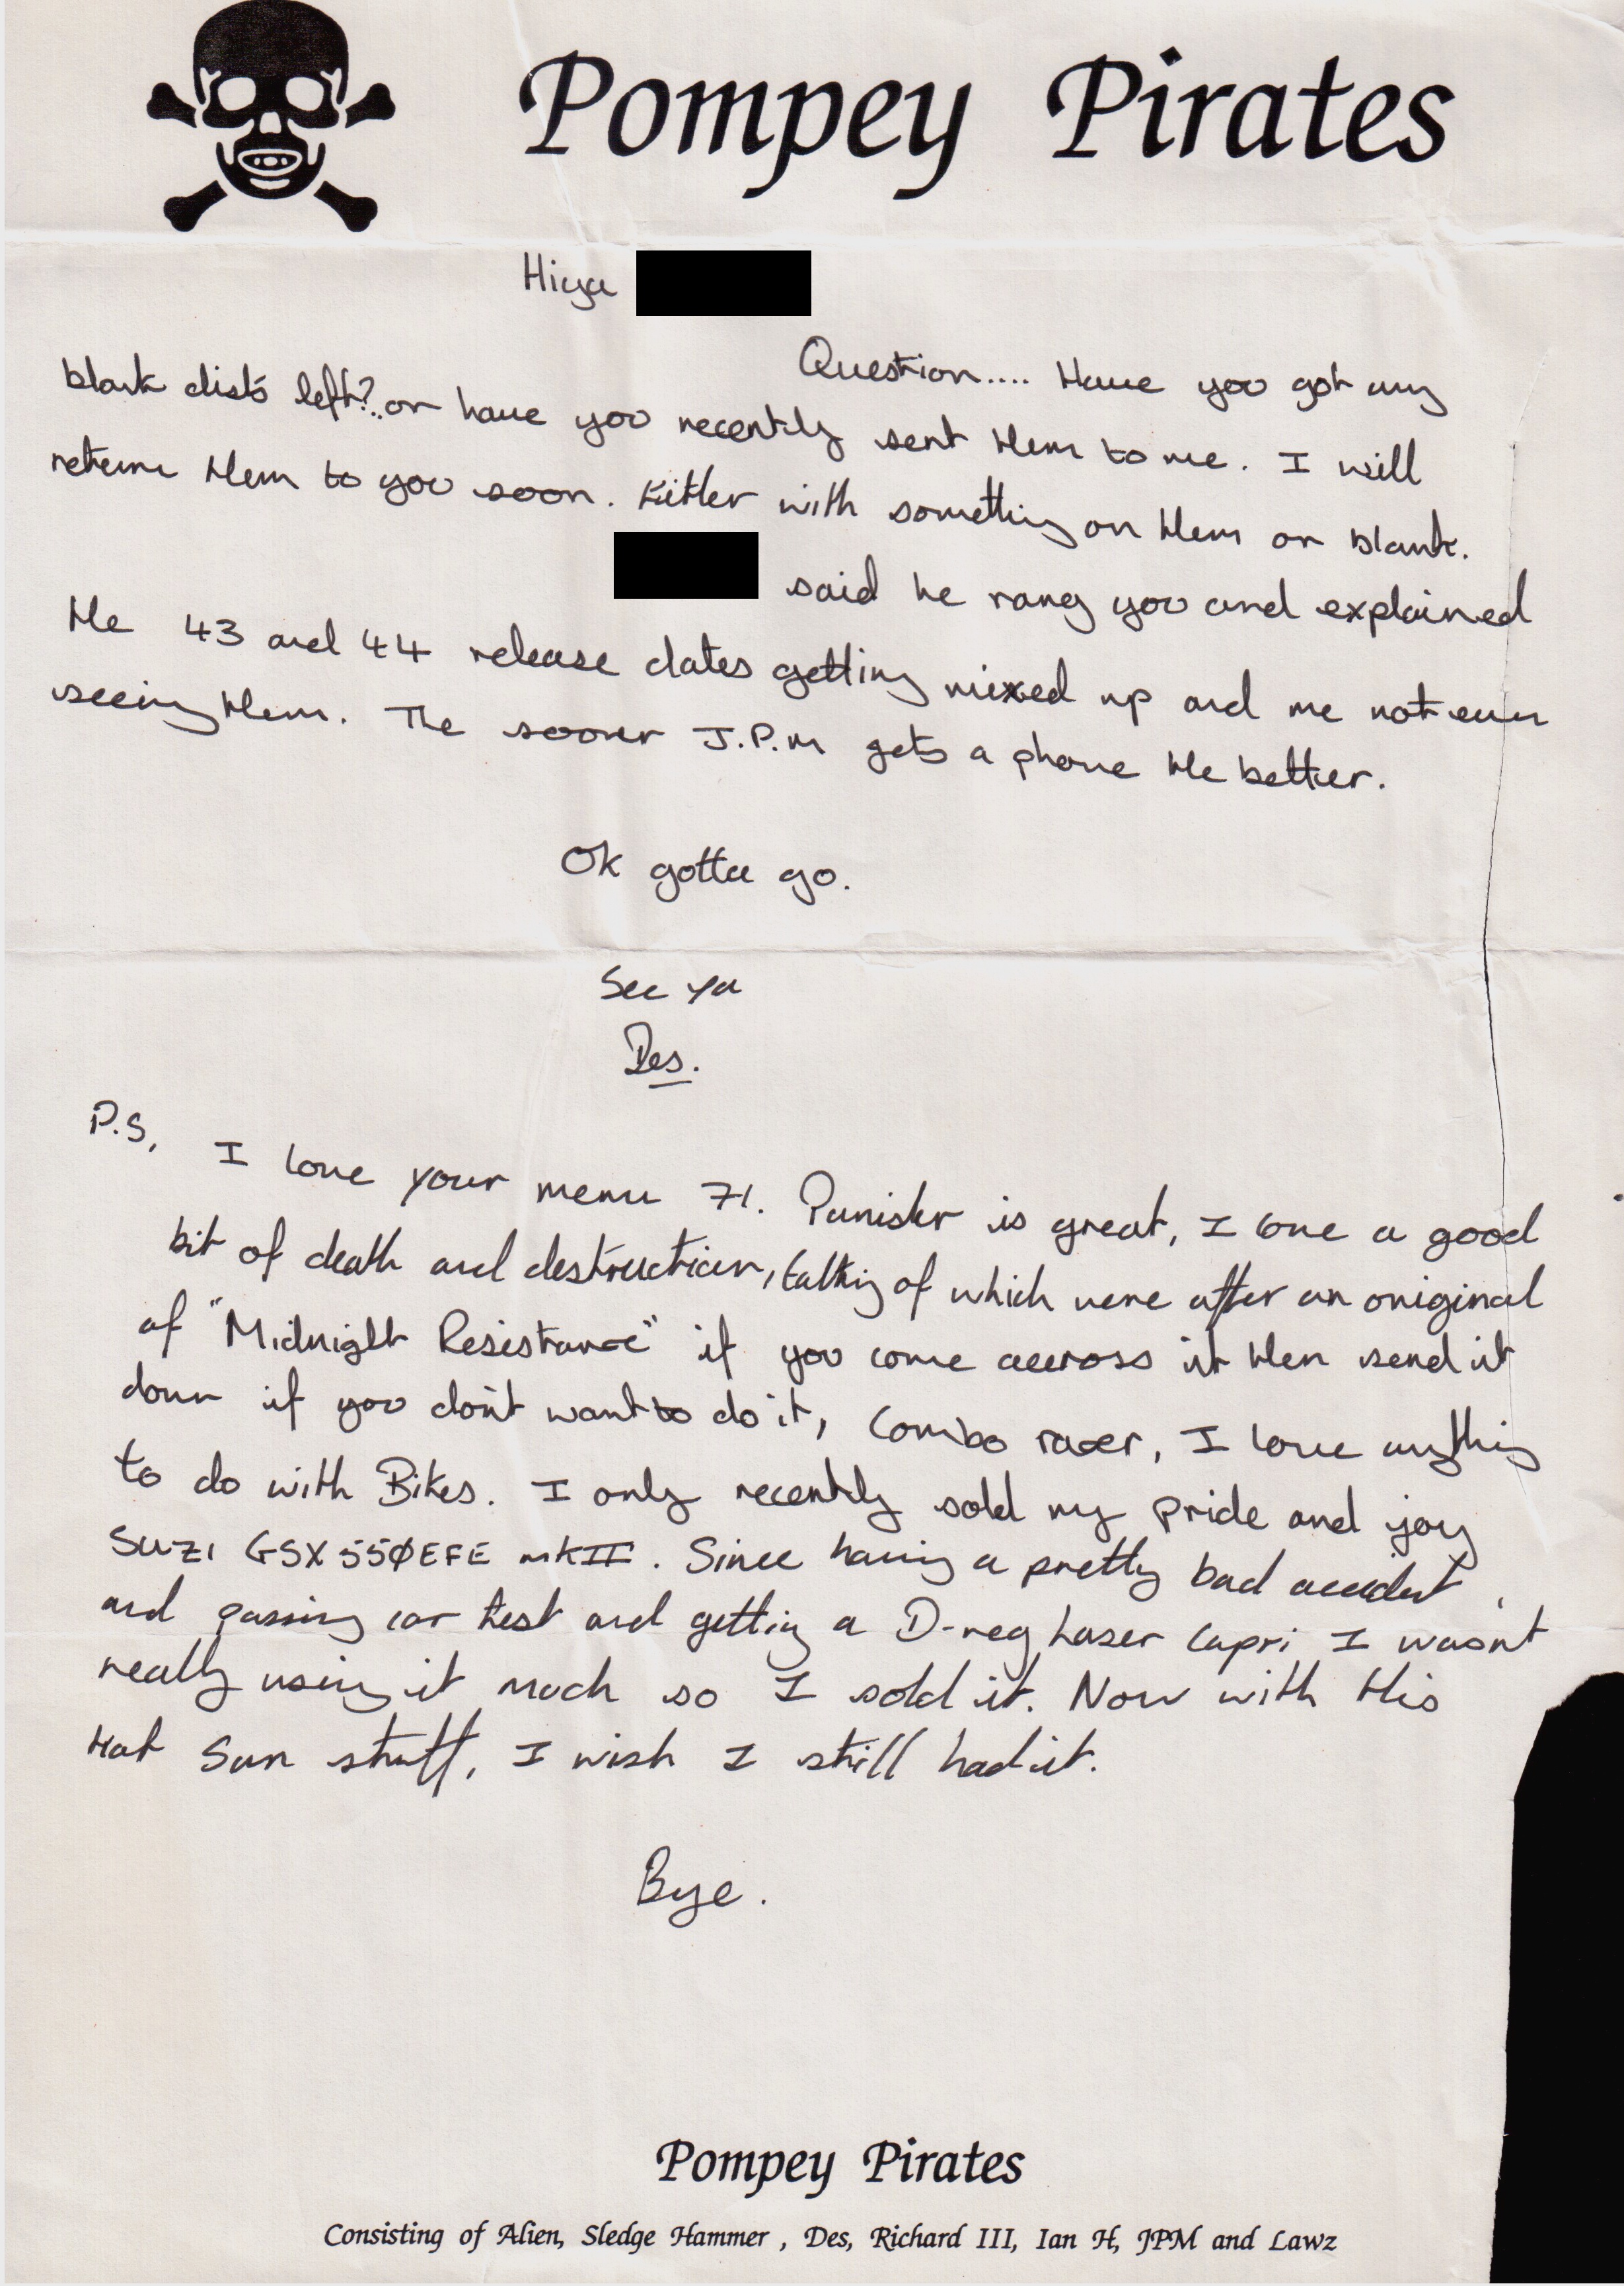 Pompey Pirates
Hiya
Question.... Have you got any
blank disks left?..or have you recently sent them to me. I will
return them to you soon. Either with something on them or blank.
said he rang you and explained
the 43 and 44 release dates getting mixed up and me not even
seeing them. The sooner J.P.M gets a phone the better.
Ok gotta go.
See ya
Des.
P.S, I love your menu 71. Punisher is great, I love a good
bit of death and destruction, talking of which were after an original
of "Midnight Resistance" if you come accross it then send it
down if you don't want to do it, Combo racer, I love anything
to do with Bikes. I only recently sold my pride and joy
SUZI GSX 550EFE mkII. Since having a pretty bad accident
and passing car test and getting a D-reg Laser Capri I wasn't
really using it much so I sold it. Now with this
Hot Sun stuff, I wish I still had it.
Bye.
Pompey Pirates
Consisting of Alien, Sledge Hammer , Des, Richard III, Ian H, JPM and Lawz